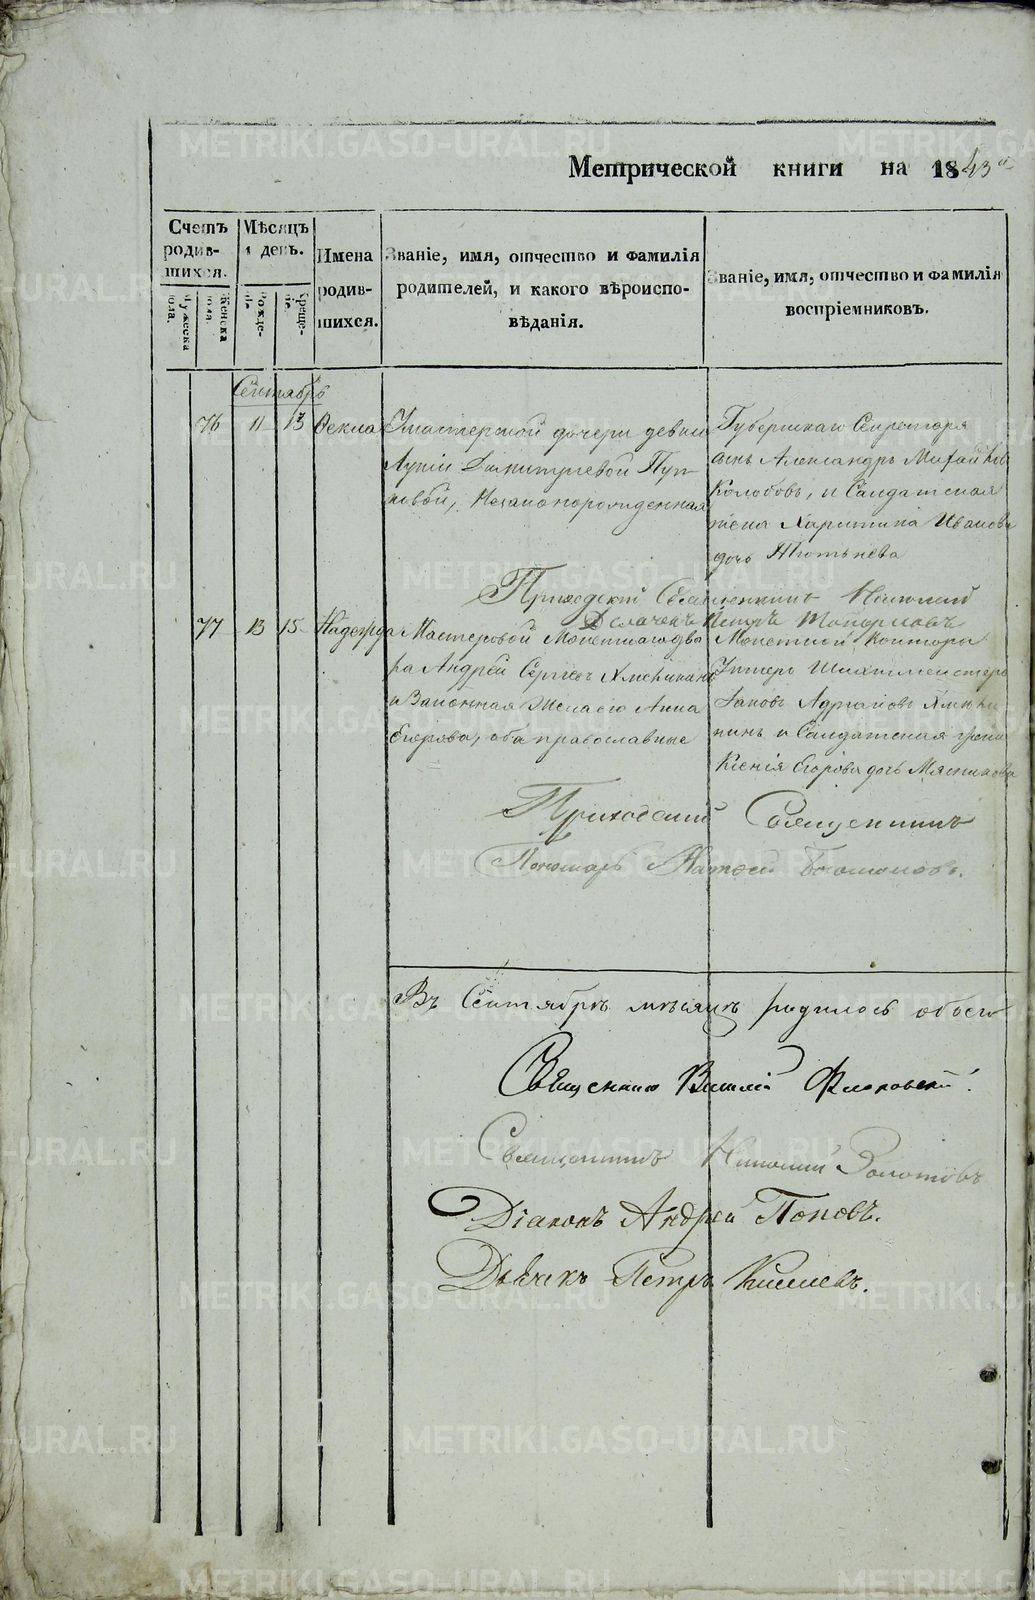 Метрической книги на 1843й
Счетъ родив-шихся.
Мѣсяцъ и день.
Имена родив-шихся.
Званіе, имя, отчество и фамилія родителей, и какого вѣроиспо-вѣданія.
Званіе, имя, отчество и фамилія воспріемниковъ.
Мужеска пола.
Женска пола.
Рожде-нія.
Креще-нія.
Сентябрь
76 11 13 Фекла
дочери девки
Димитріевой
Незаконорожденная
Губернскаго Секретаря
сынъ Александръ Михайловъ
Колобовъ, и Салдатская
жена Харитина Иванова
дочь
Приходскій Священникъ Николай
77 13 15 Надежда
Дьячокъ Петръ Топорковъ
Мастеровой Монетнаго дво
ра Андрей Сергеевъ
и Законная Жена его Анна
Егорова, оба православные
Монетной Конторы
Унтеръ Шихтмейстеръ
и Салдатская жена
Ксенія Егорова дочь Мясникова
Приходскій Священникъ
Пономарь
Въ Сентябрѣ мѣсяцѣ родилось обоего
Священникъ Василій Флоровскій.
Священникъ Николай Золотовъ
Діаконъ Андрей Поповъ.
Дьячекъ Петръ Киселевъ.
METRIKI.GASO-URAL.RU